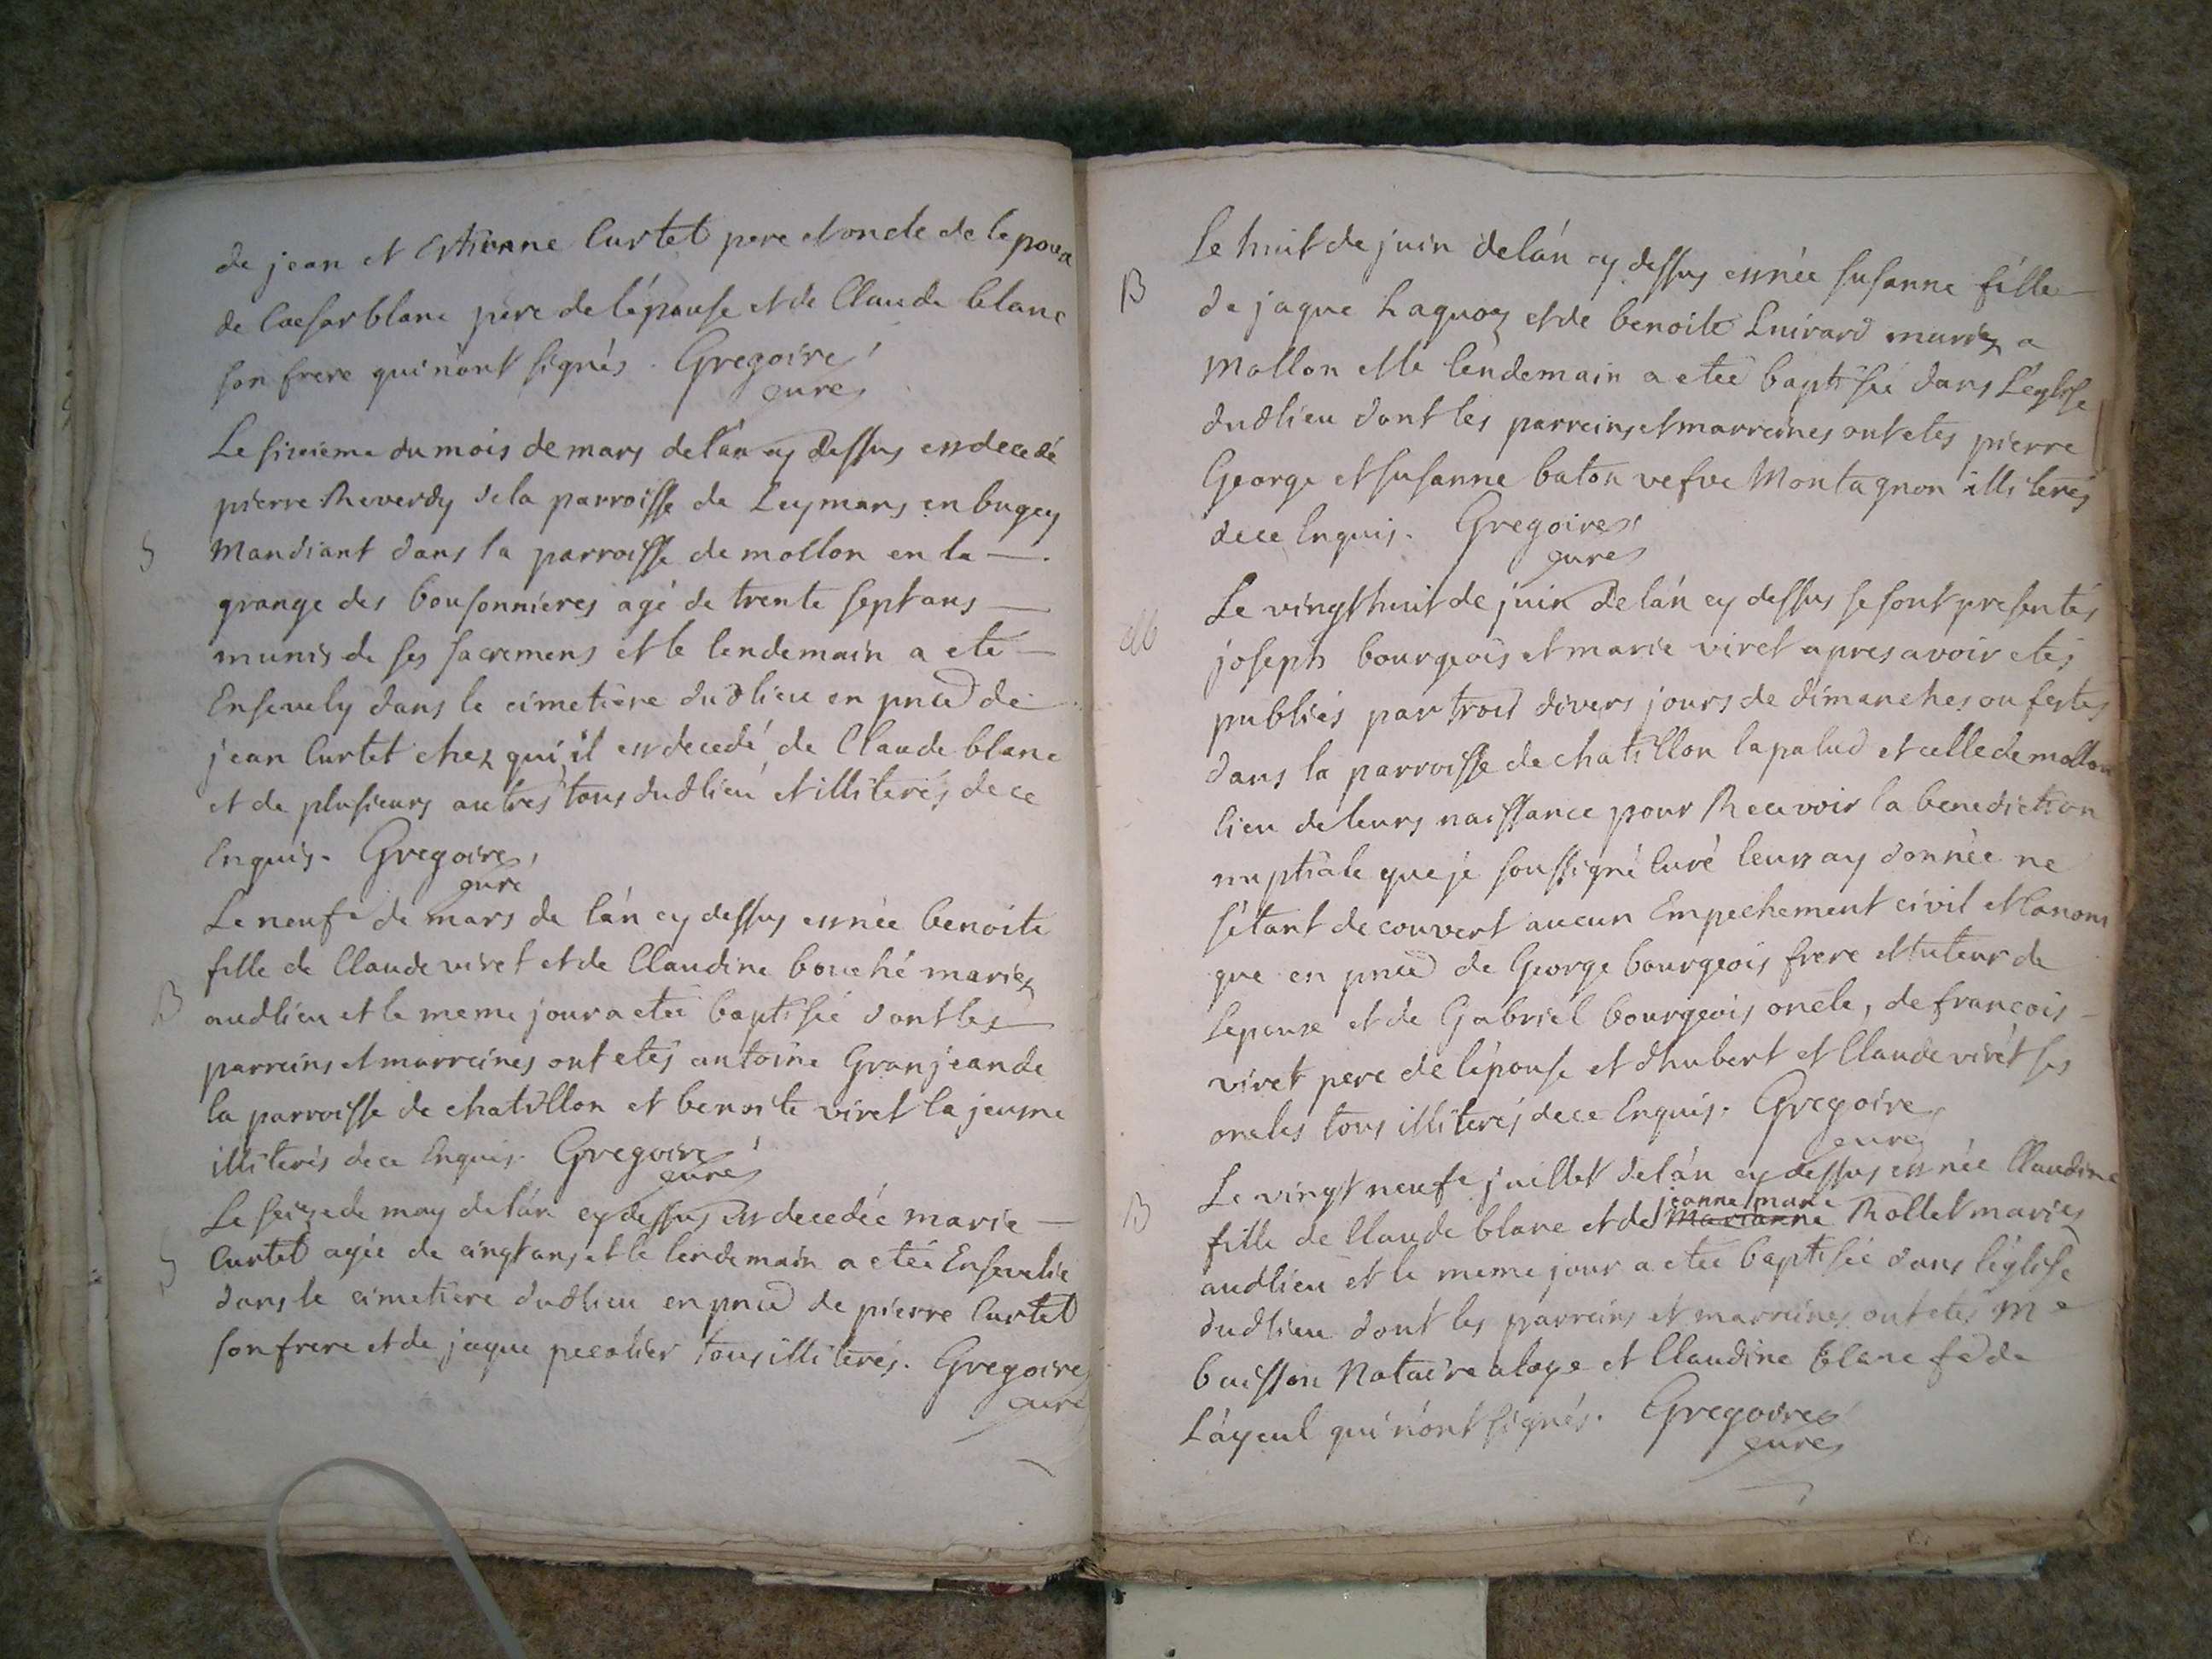 de jean et Estienne Curtet pere et oncle de lepoux
de Caesar blanc père de lépouse et de Claude blanc
son frere qui nònt signés. Gregoire
curé
Le sixieme du mois de mars de lán cy dessus est decedé
pierre Reverdy de la parroisse de Leymans en bugey
S
Mandiant dans la parroisse de mollon en la —.
grange des bousonnieres agé de trente sept ans —
munis de ses sacremens et le lendemain a eté —
Ensevely dans le cimetière dudlieu en pnce de
jean Curtet chez qui il est decedé de Claude blanc
et de plusieurs autres tous dudlieu et illiterés de ce
Enquis. Gregoire,
curé
Le neufe de mars de lán cy dessus est née benoite
fille de Claude viret et de Claudine bouché mariez
B
audlieu et le meme jour a eteé baptisée dont les
parreins et marreines ont etés antoine Granjean de
la parroisse de chatillon et benoite viret la jeune
illiterés de ce Enquis. Gregoire
curé
Le seize de may de lán cy dessus est decedée marie —
S
Curtet agée de cinqt ans et le lendemain a eteé Ensevelie
dans le cimetiere dudlieu en pnce de pierre Curtet
son frere et de jaque tous illiterés. Gregoire
curé
Le huit de juin de lán cy dessus est née susanne fille
B
de jaque et de benoite mariez a
Mollon et le lendemain a eteé baptisée dans L'eglise
dudlieu dont les parreins et marreines ont etés pierre
George et susanne baton vefve Montagnon illiterés
de ce Enquis. Gregoire
curé
Le vingt huit de juin de lán cy dessus se sont presentés
M
joseph bourgeois et marie viret apres avoir etés
publiés par trois divers jours de dimanches ou festes
dans la parroisse de chatillon lapalud et celle de mollon
lieu de leurs naissance pour Recevoir la benediction
nuptiale que je soussigné Curé leurs ay donnée ne
s'étant decouvert aucun Empechement civil et Canoni
que en pnce de George bourgeois frere et tuteur de
lepoux et de Gabriel bourgeois oncle, de francois —
viret pere de lépouse et dhubert et Claude virét ses
oncles tous illiterés de ce Enquis. Gregoire
curé
Le vingt neufe juillet de lán cy dessus est née Claudine
jeanne marie
B
fille de Claude blanc et de Marianne Rollet mariez
audlieu et le meme jour a eteé baptisée dans léglise
dudlieu dont les parreins et marreines ont etés Me
buisson Notaire a loye et Claudine blanc fe de
L'áyeul qui nónt signés. Gregoire
curé